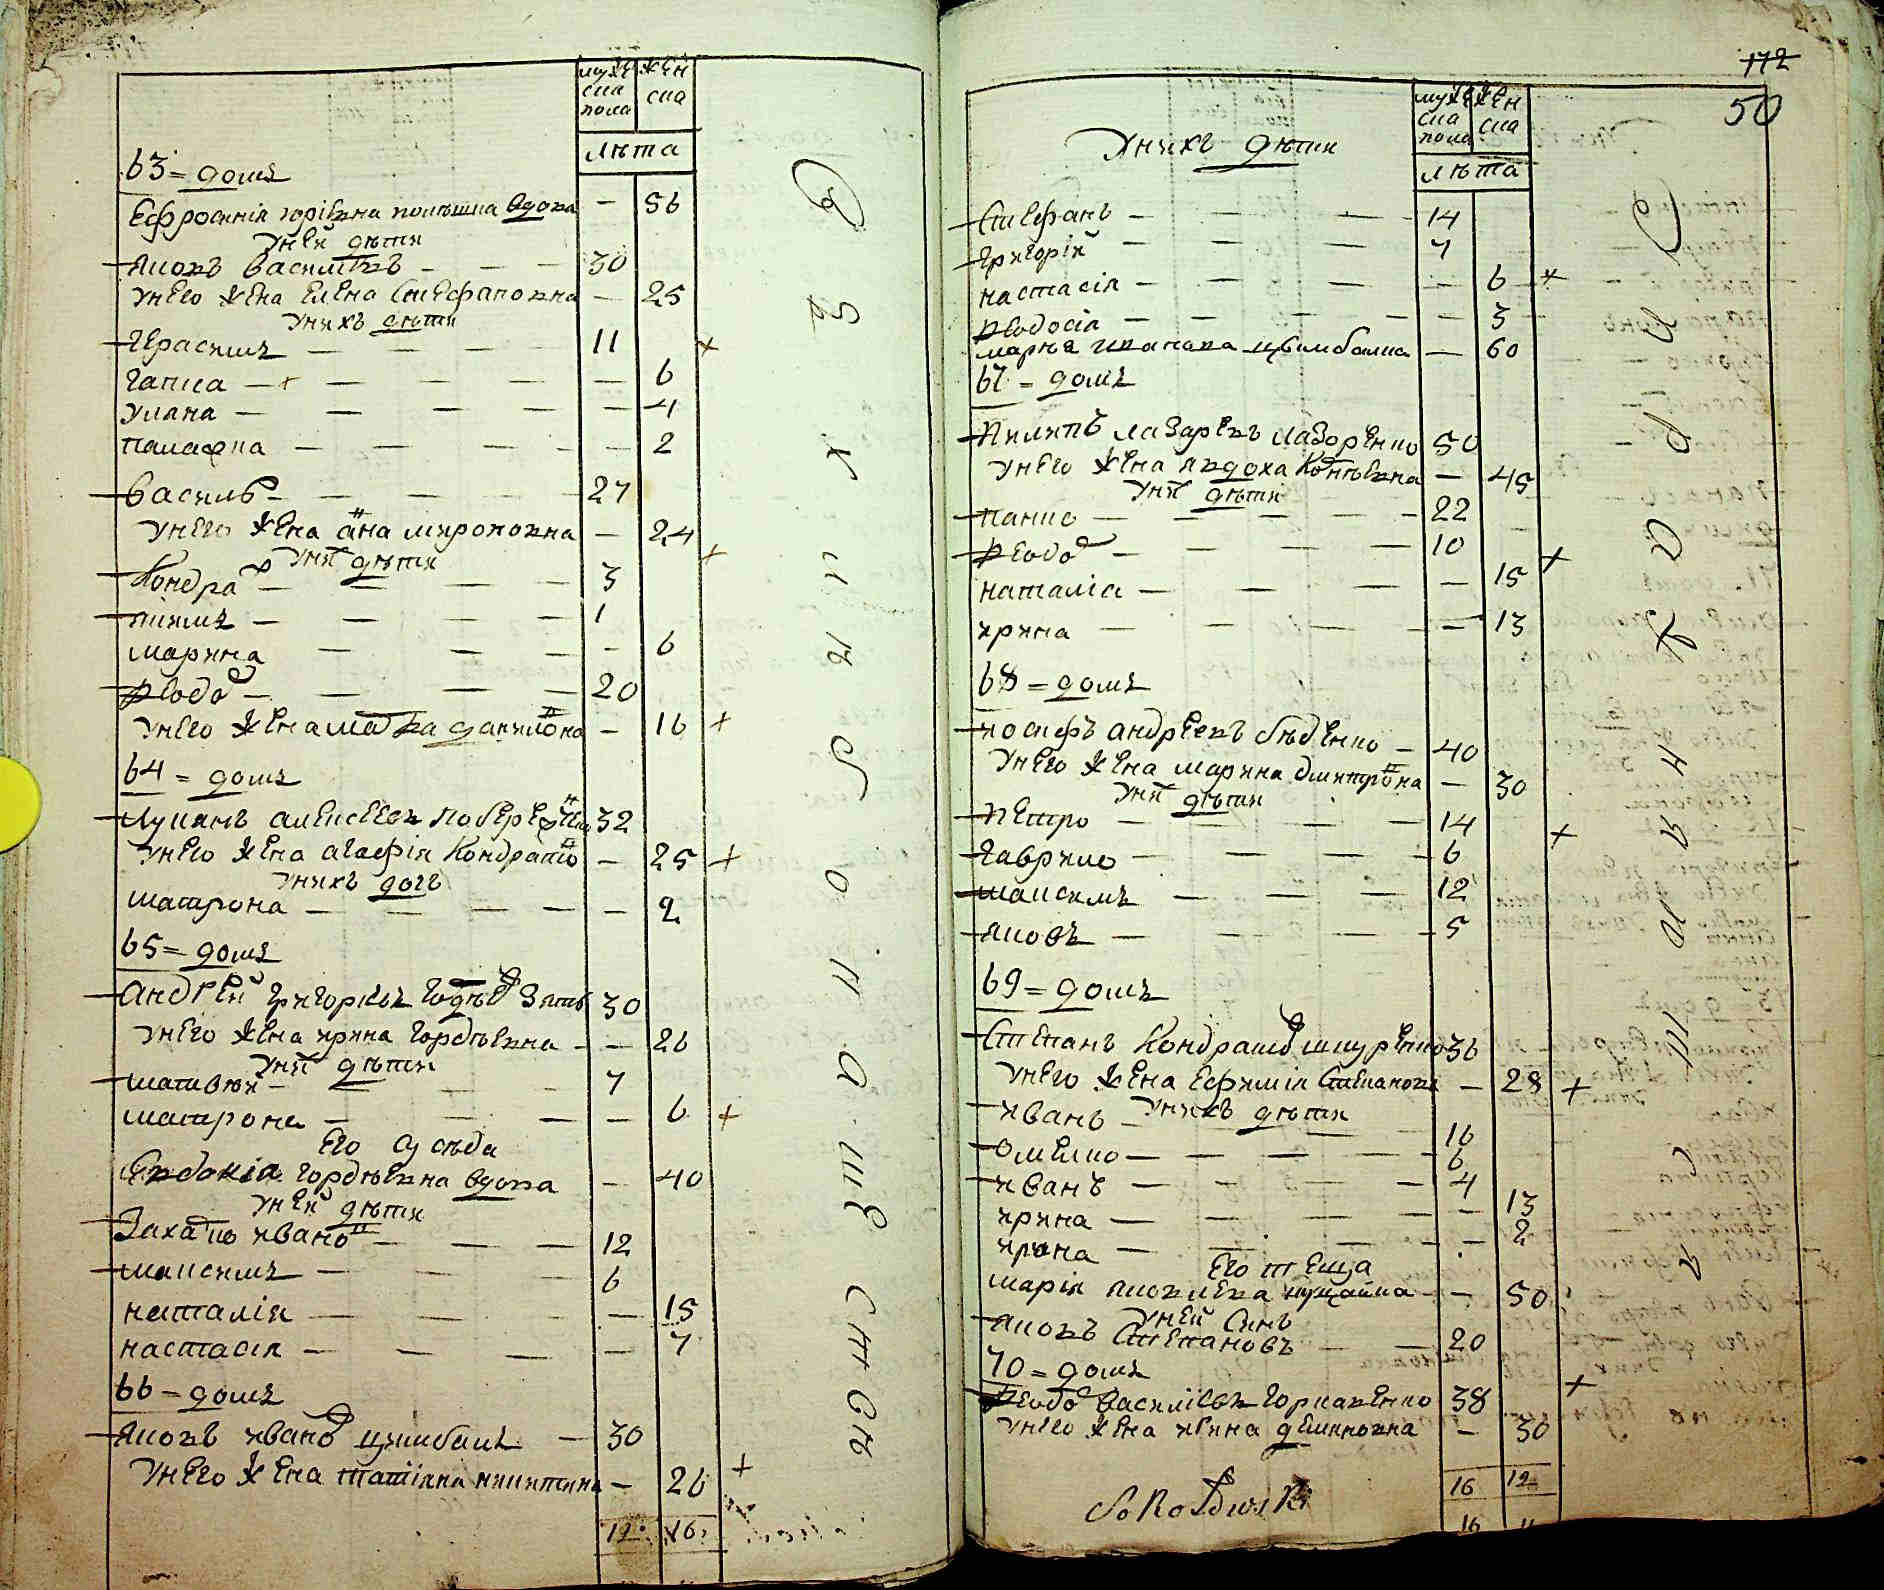 муже ска пола
жен ска
лѣта
63 = домъ
Ефросинія юріевна полешка вдова — 56
у ней дѣти
яковъ василіевъ — — — 30
у него жена елена стефановна — 25
у нихъ дѣти
герасимъ — — — 11
гапка — — — — 6
уляна — — — — 4
палажка — — — — 2
василь — — — — 27
у него жена анна мироновна — 24
у них дѣти
кондрат — — — 3
якимъ — — — — 1
марина — — — — 6
ѳеодор — — — — 20
у него жена мавра даниловна — 16
64 = домъ
лукянъ алексеев побережный 32
у него жена агафія кондратова — 25
у нихъ дочь
матрона — — — — 2
65 = домъ
андрей григориевъ гордѣев зять 30
у него жена ирина гордѣевна — 26
у них дѣти
матвѣй — — — 7
матрона — — — — 6
его сусѣда
Евдокія гордѣевна вдова — 40
у ней дѣти
Захарко иванов — — — 12
максимъ — — — 6
наталія — — — — 15
настасія — — — — 7
66 = домъ
яковъ иванов цимбалъ — 30
у него жена татіана никитина — 26
12 16
172
50
у нихъ дѣти
муже ска пола
жен ска
лѣта
стефанъ — — — 14
григорій — — — 7
настасія — — — — 6
ѳеодосія — — — — 3
марѳа иванова цимбалка — 60
67 = домъ
Пилипъ лазаревъ лазоренко 50
у него жена явдоха кондѣевна — 45
у них дѣти
панко — — — — 22
ѳеодор — — — 10
наталія — — — — 15
ирина — — — — 13
68 = домъ
иосифъ андреевъ бѣденко — 40
у него жена марина дмитровна — 30
у них дѣти
петро — — — — 14
гаврило — — — — 6
максимъ — — — 12
яковъ — — — — 5
69 = домъ
степанъ кондратов шпуренко 36
у него жена ефимія степанова — 28
у нихъ дѣти
иванъ — — — 16
омелко — — — — 6
иванъ — — — — 4
ирина — — — — 13
ирина — — — — 2
его теща
марія яковлева — 50
у ней синъ
яковъ степановъ — — 20
70 = домъ
ѳеодор василіевъ горкавенко 38
у него жена ирина демяновна — 30
16 12
16 11
Sokolowski